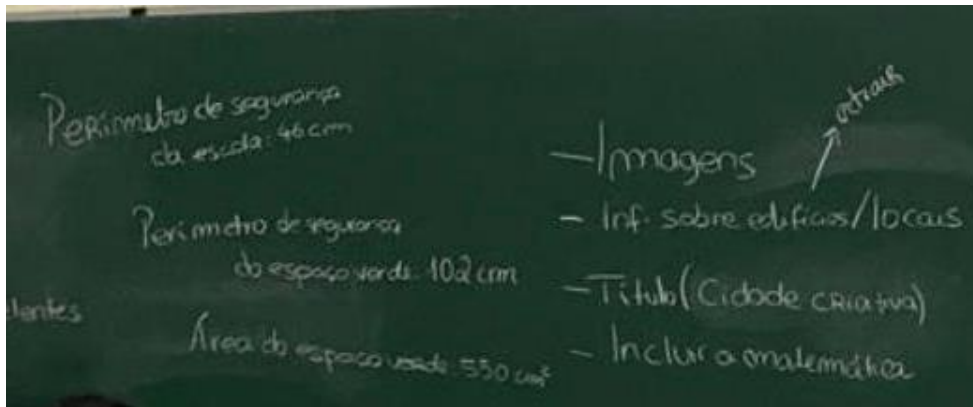 Perímetro de segurança
da escola: 46cm
Perímetro de segurança
do espaço verde: 102 cm
Área do espaço verde: 550 cm²
- Imagens
- Inf. sobre edifícios/locais
- Título (Cidade criativa)
- Incluir a matemática